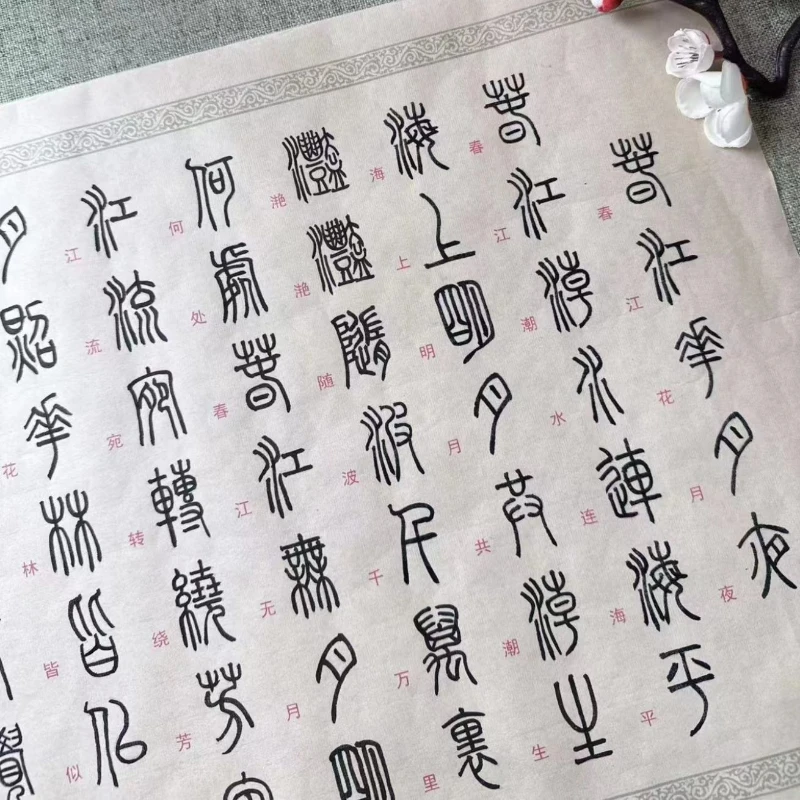 春江花月夜
春江花月夜
春江潮水連海平
春江潮水连海平
海上明月共潮生
海上明月共潮生
灩灩隨波千萬裏
滟滟随波千万里
何處春江無月明
何处春江无月
江流宛轉繞芳
江流宛转绕芳
月照花林皆似
花林皆似
覺